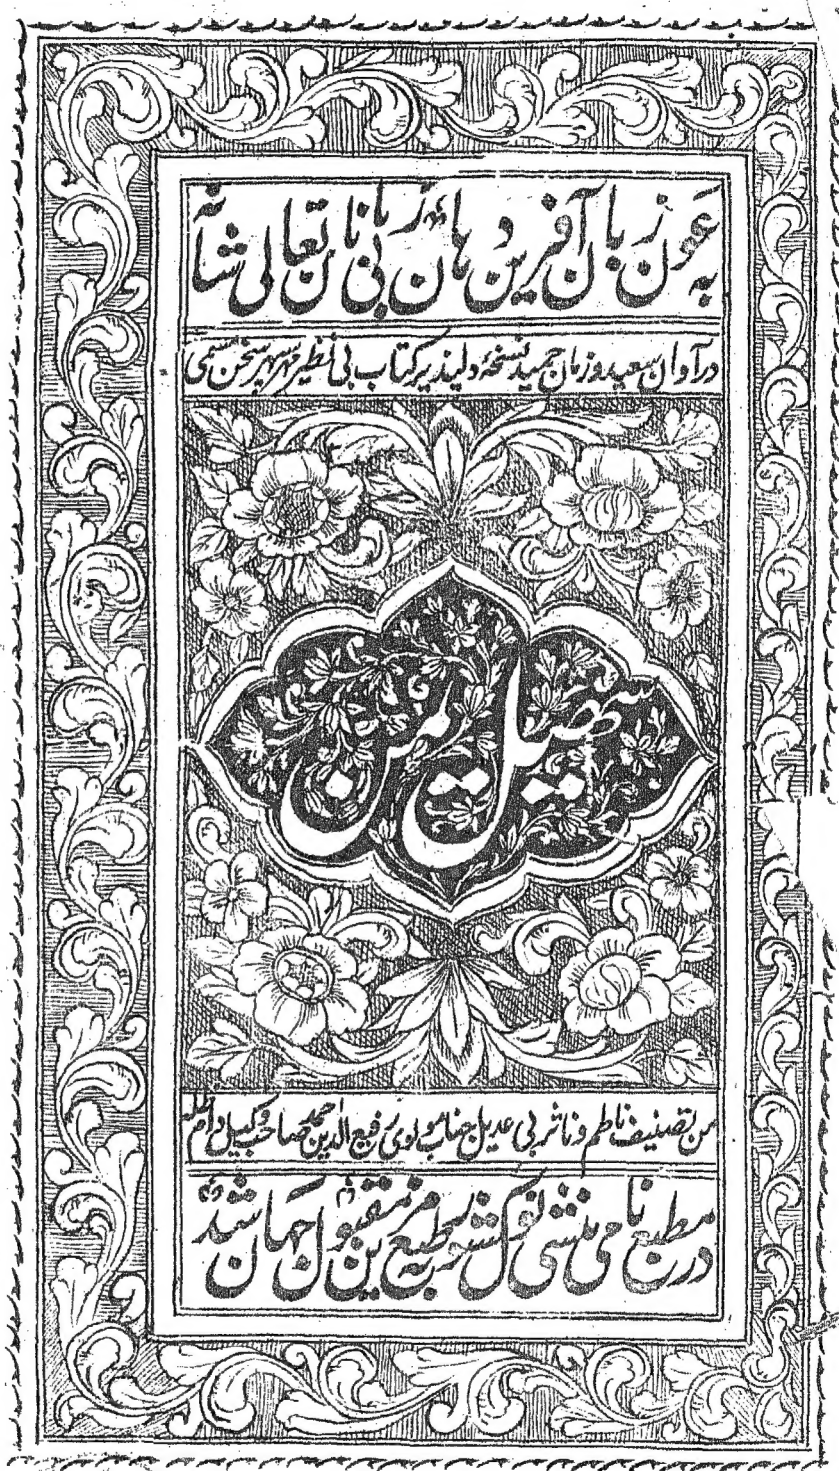 به عون زبان آفرین دهان بی زبانان تعالی شانه
در آوان سعید و زمان حمید نسخهٔ دلپذیر کتاب بی نظیر مهر سپهر سخن مسمی
سهیل یمن
من تصنیف ناظم و ناثر بی عدیل جناب مولوی رفیع الدین احمد صاحب وکیل دام ظله
در مطبع نامی منشی نولکشور بطبع مزین مقبول جهان شد